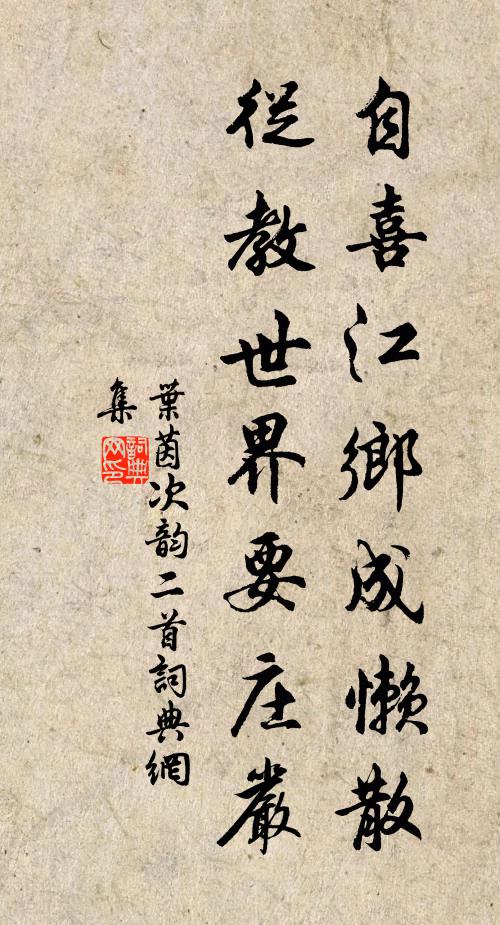 自喜江鄉成懶散
從教世界要庄嚴
葉茵次韵二首詞典網
集
詞典
网印